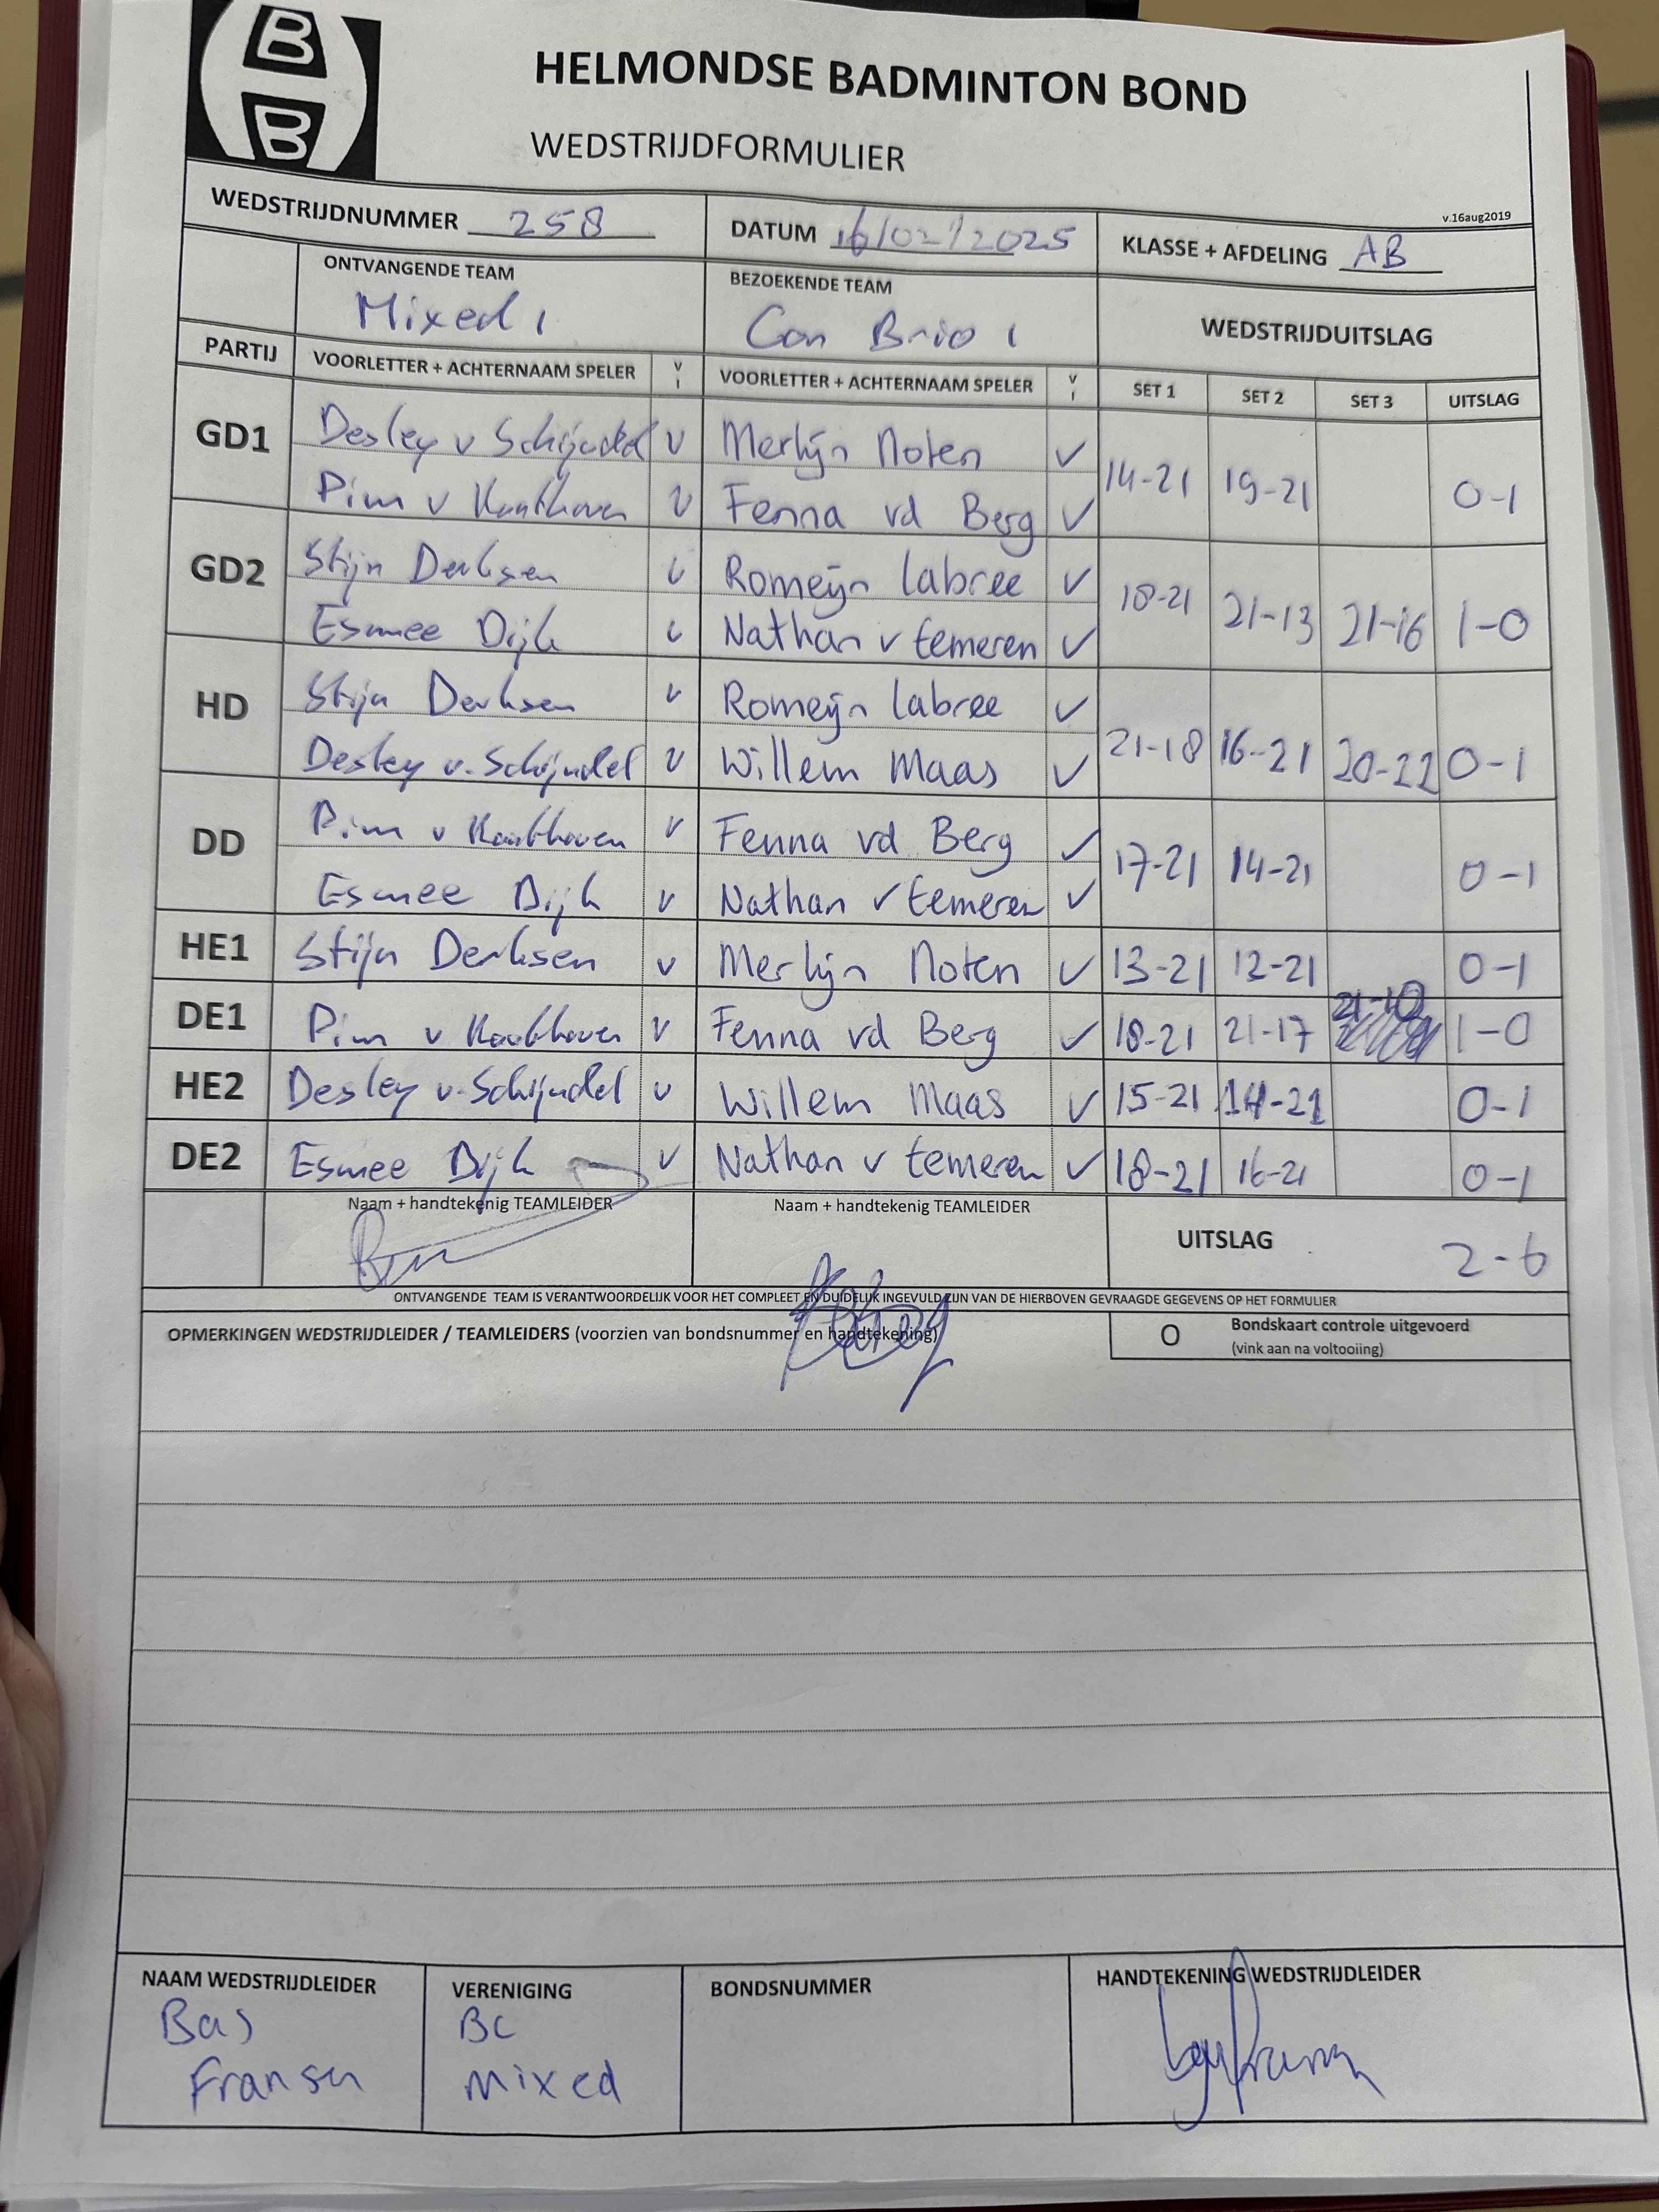 B
B
HELMONDSE BADMINTON BOND
WEDSTRIJDFORMULIER
v.16aug2019
WEDSTRIJDNUMMER 258 DATUM 16/02/2025 KLASSE + AFDELING AB
ONTVANGENDE TEAM BEZOEKENDE TEAM WEDSTRIJDUITSLAG
Mixed 1 Con Brio 1
PARTIJ VOORLETTER + ACHTERNAAM SPELER V I VOORLETTER + ACHTERNAAM SPELER V I SET 1 SET 2 SET 3 UITSLAG
GD1 Desley v Schijndel v Merlijn Noten ✓ 14-21 19-21 0-1
Pim v v Fenna vd Berg ✓
GD2 Stijn Derksen v Romeijn Labree ✓ 18-21 21-13 21-16 1-0
Esmee Dijk v Nathan v temeren ✓
HD Stijn Derksen v Romeijn Labree ✓ 21-18 16-21 20-22 0-1
Desley v. Schijndel v Willem Maas ✓
DD Pim v v Fenna vd Berg ✓ 17-21 14-21 0-1
Esmee Dijk v Nathan v temeren ✓
HE1 Stijn Derksen v Merlijn Noten ✓ 13-21 12-21 0-1
DE1 Pim v v Fenna vd Berg ✓ 18-21 21-17 21-10 1-0
HE2 Desley v. Schijndel v Willem Maas ✓ 15-21 14-21 0-1
DE2 Esmee Dijk v Nathan v temeren ✓ 18-21 16-21 0-1
Naam + handtekenig TEAMLEIDER Naam + handtekenig TEAMLEIDER UITSLAG 2-6
ONTVANGENDE TEAM IS VERANTWOORDELIJK VOOR HET COMPLEET EN DUIDELIJK INGEVULD ZIJN VAN DE HIERBOVEN GEVRAAGDE GEGEVENS OP HET FORMULIER
OPMERKINGEN WEDSTRIJDLEIDER / TEAMLEIDERS (voorzien van bondsnummer en handtekening) O Bondskaart controle uitgevoerd
(vink aan na voltooiing)
NAAM WEDSTRIJDLEIDER VERENIGING BONDSNUMMER HANDTEKENING WEDSTRIJDLEIDER
Bas BC
Fransen Mixed